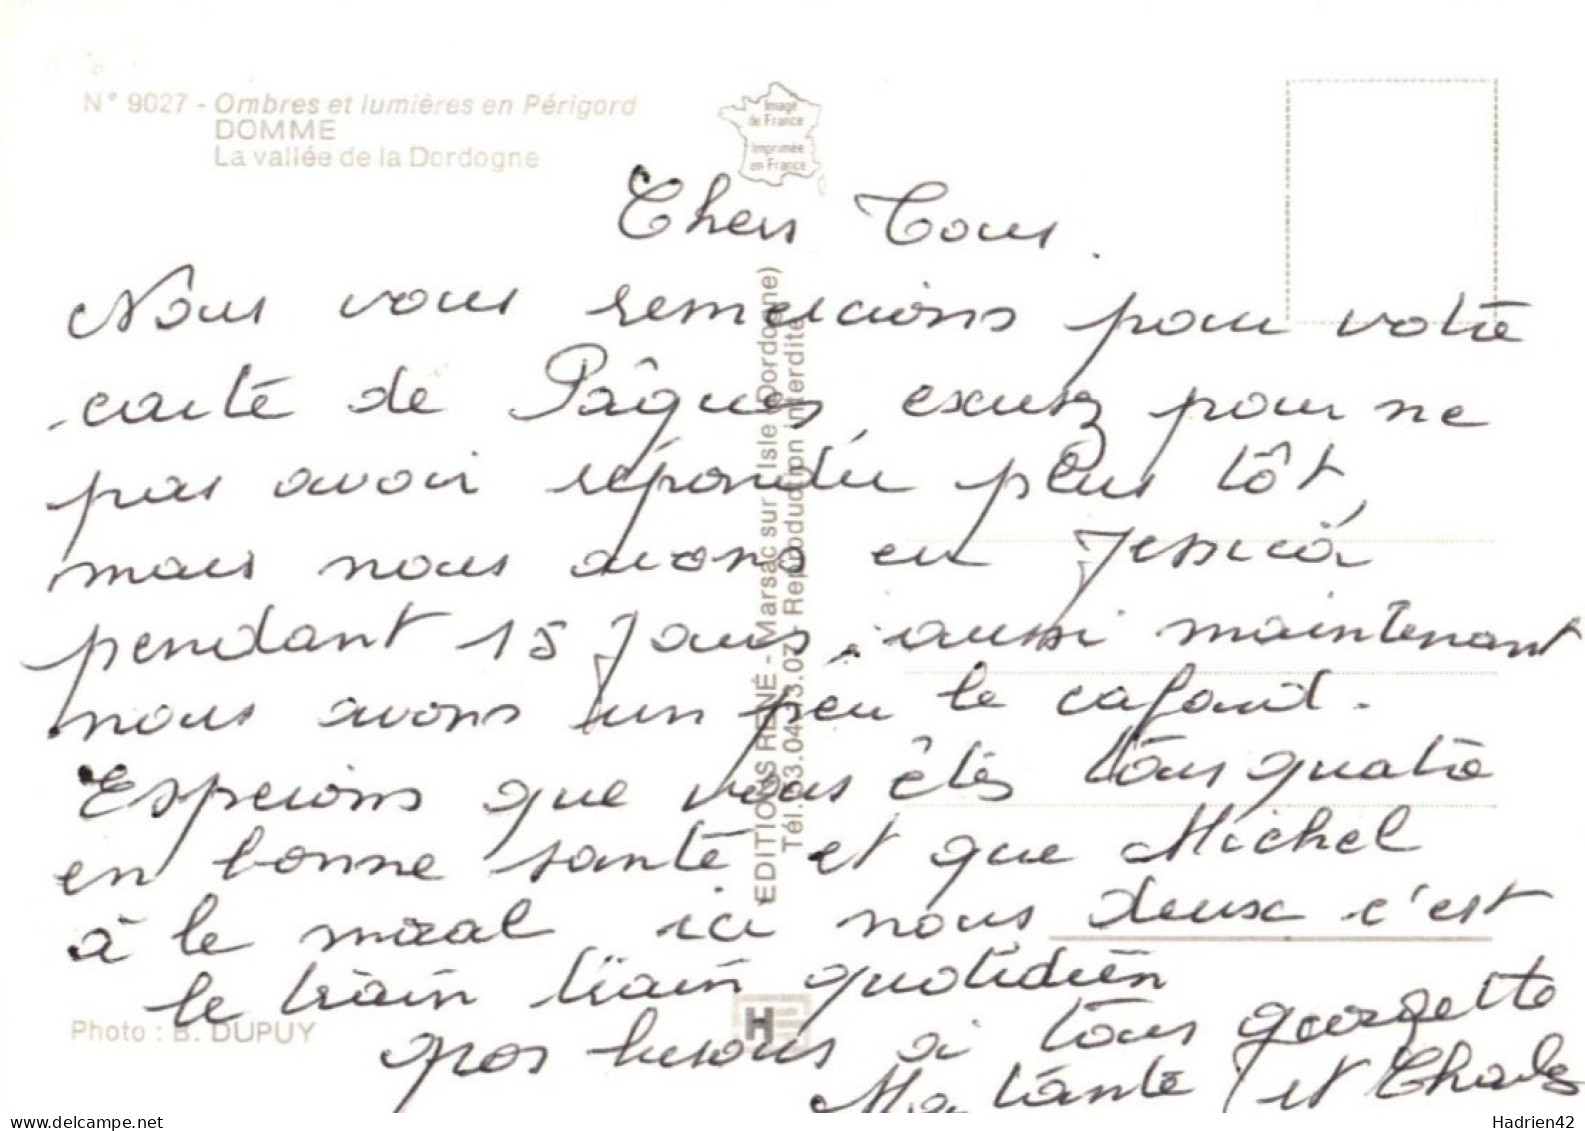 N° 9027 - Ombres et lumières en Périgord
DOMME
La vallée de la Dordogne
Image
de France
Imprimée
en France
Chers Tous.
Nous vous remercions pour votre
carte de Pâques, excusez pour ne
pas avoir répondu plus tôt,
mais nous avons eu Jessica
pendant 15 Jours, aussi maintenant
nous avons un peu le cafard.
Esperions que vous êtes tous quatre
en bonne santé et que Michel
à le moral ici nous deux c'est
le train train quotidien
gros bisous à tous georgette
Ma tante et Charles
EDITIONS RENÉ - Marsac sur Isle (Dordogne)
Reproduction interdite
Photo : B. DUPUY
Hadrien42